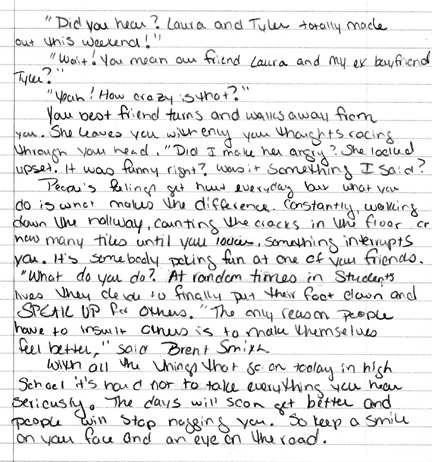 "Did you hear? Laura and Tyler totally made
out this weekend!"
"Wait! You mean our friend Laura and my ex boyfriend
Tyler?"
"Yeah! How crazy is that?"
Your best friend turns and walks away from
you. She leaves you with only your thoughts racing
through your head. "Did I make her angry? She looked
upset. It was funny right? Was it something I said?
People's feelings get hurt everyday but what you
do is what makes the difference. Constantly, walking
down the hallway, counting the cracks in the floor or
how many tiles until you locker, something interrupts
you. It's somebody poking fun at one of your friends.
"What do you do? At random times in students
lives they decide to finally put their foot down and
SPEAK UP for others. "The only reason people
have to insult others is to make themselves
feel better," said Brent Smith
With all the things that go on today in high
School it's hard not to take everything you hear
seriously. The days will soon get better and
people will stop nagging you. So keep a smile
on your face and an eye on the road.